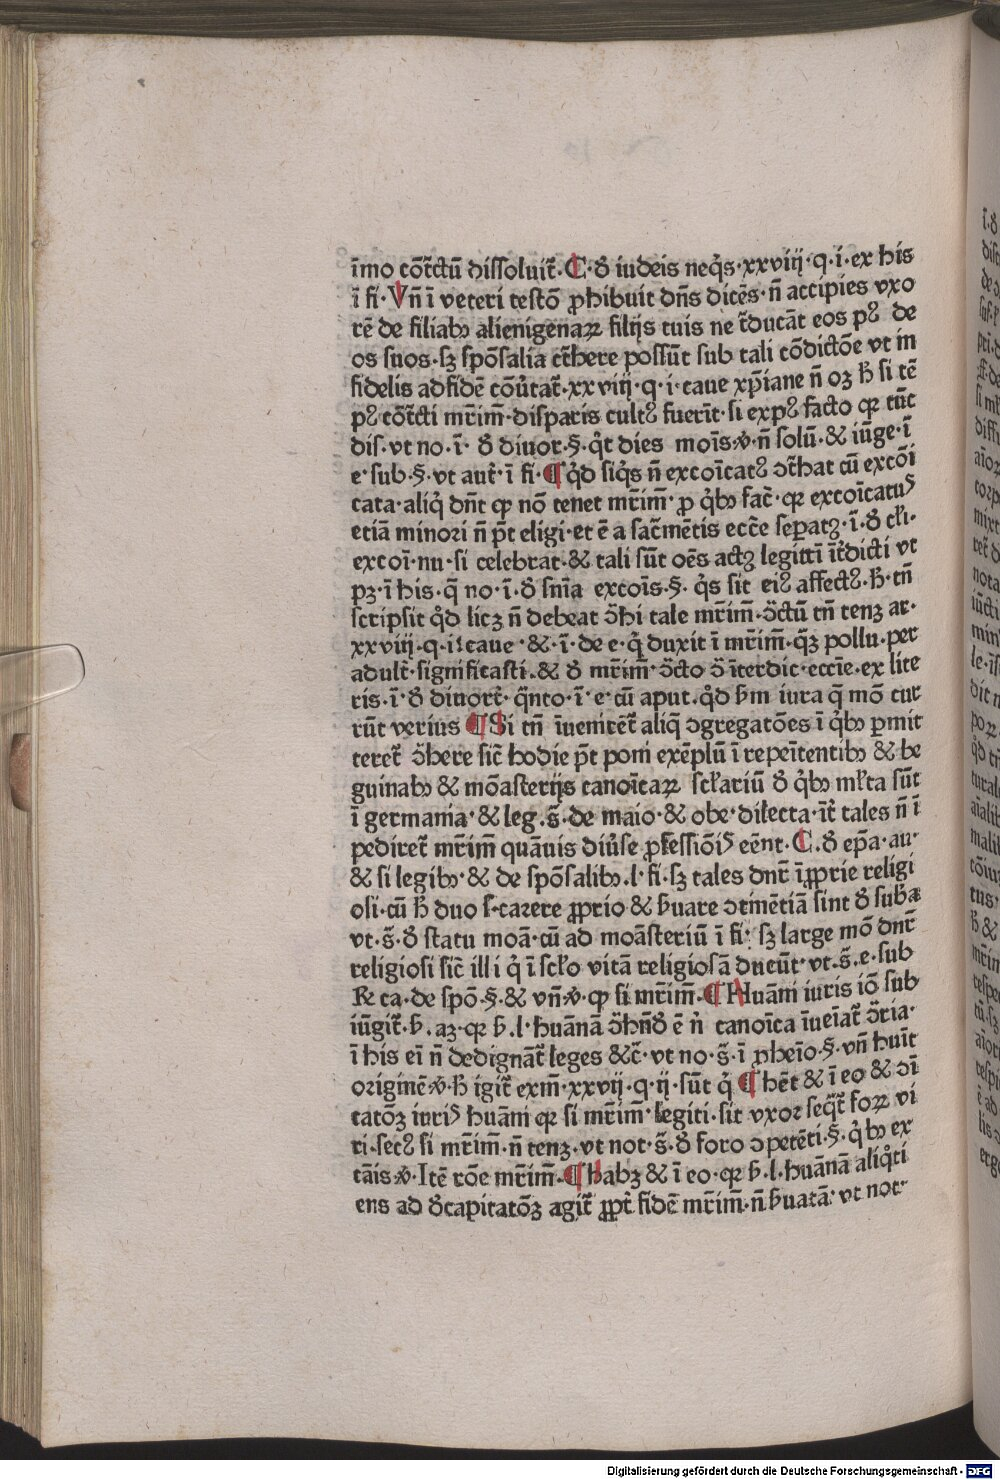 īmo cōt̄ctū dissoluit̄. C. ꝺ iudeis neq̄s. xxviij. q. i. ex his
ī fi. Vn̄ ī veteri testō ꝓhibuit dn̄s dicēs. n̄ accipies vxo
rē de filiabꝰ alienigenaꝝ filijs tuis ne t̄ducāt eos pꝰ de
os suos. sꝫ spōsalia ct̄here possūt sub tali cōdictōe vt in
fidelis ad fidē cōu̔tat̄. xxviij. q. i. caue xp̄iane n̄ oꝫ ħ si tē
pꝰ cōt̄cti mr̄im̄. disparis cultꝰ fuerit̄. si exp̄ꝰ facto qꝛ tūc
dis. vt no. ī. ꝺ diuor. §. q̄t dies mōis ꝟ. n̄ solū. & iūge. ī
e. sub. §. vt aut̄. ī fi. ¶ q̄d siq̄s n̄ excoīcatꝰ ↄt̄hat cū excōi
cata. aliq̄ dn̄t ꝙ nō tenet mr̄im̄. ꝓ q̄bꝰ fac̄. qꝛ excoīcatuꝰ
etiā minori n̄ pt̄ eligi. et ē a sac̄mētis ecc̄e sep̄atꝫ. ī. ꝺ cł̄i.
excoī. nu. si celebrat. & tali sūt oēs actꝫ legitti īt̄dicti vt
pꝫ. ī his. q̄ no. ī. ꝺ sn̄ia excoīs. §. q̄s sit eiꝰ affectꝰ. ħ. tn̄
scripsit q̄d licꝫ n̄ debeat ↄ̄hi tale mr̄im̄. ↄ̄ctū tn̄ tenꝫ ar.
xxviij. q. i. caue. &. ī. de e. q̄ duxit ī mr̄im̄. q̄ꝫ pollu. per
adult̄. significasti. & ꝺ mr̄im̄. ↄ̄cto ↄ̄ īterdic. eccīe. ex lite
ris. ī. ꝺ diuort̄. q̄nto. ī. e. cū aput. q̄d ƀm iura q̄ mō cur
rūt verius ¶ Si tn̄ īuenirēt̄ aliq̄ ↄgregatōes ī q̄bꝰ ꝑmit
teret̄ ↄ̄here sic̄ hodie pt̄ poni exēplū ī repeītentibꝰ & be
guinabꝰ & mōasterijs canoīcaꝝ scł̄ariū ꝺ q̄bꝰ mł̄ta sūt
ī germania. & leg. s̄. de maio. & obe. dilecta. īt̄ tales n̄ ī
pediret̄ mr̄im̄ quāuis diu̔se ꝓfessiōiꝰ eēnt. C. ꝺ ep̄a. au.
& si legibꝰ. & de spōsalibꝰ. l. fi. sꝫ tales dnr̄ īꝓprie religi
osi. cū ħ duo s. carere ꝓprio & ƀuare ↄtinētiā sint ꝺ suƀa
vt. s̄. ꝺ statu moā. cū ad moāsteriū ī fi. sꝫ large mō dnr̄
religiosi sic̄ illi q̄ ī scł̄o vitā religiosā ducūt. vt. s̄. e. sub
℞ca. de spō. §. & vn̄ ꝟ. ꝙ si mr̄im̄. ¶ Huāni iuris iō sub
iūgit̄. ƀ. aꝫ. qꝛ ƀ. l. huānā ↄ̄hn̄ꝺ ē n̄ canoīca īueīat̄ ↄ̄ria.
ī his ei n̄ dedignāt̄ leges &c̄. vt no. s̄. ī ꝓheīo. §. vn̄ huīt
originē ꝟ. ħ igit̄ exm̄. xxvij. q. ij. sūt q̄ ¶ hēt & ī eo & ↄī
tatōꝫ iuriꝰ huāni qꝛ si mr̄im̄. legiti. sit vxor seq̄t̄ foꝝ vi
ri. secꝰ si mr̄im̄. n̄ tenꝫ. vt not. s̄. ꝺ foro ↄpetēti. §. q̄bꝰ ex
tāis ꝟ. Itē rōe mr̄im̄. ¶ habꝫ & ī eo. qꝛ ƀ. l. huānā aliq̄ti
ens ad ꝺcapitatōꝫ agit̄ ꝓpt̄ fidē mr̄im̄. n̄ ƀuatā. vt not.
Digitalisierung gefördert durch die Deutsche Forschungsgemeinschaft - DFG